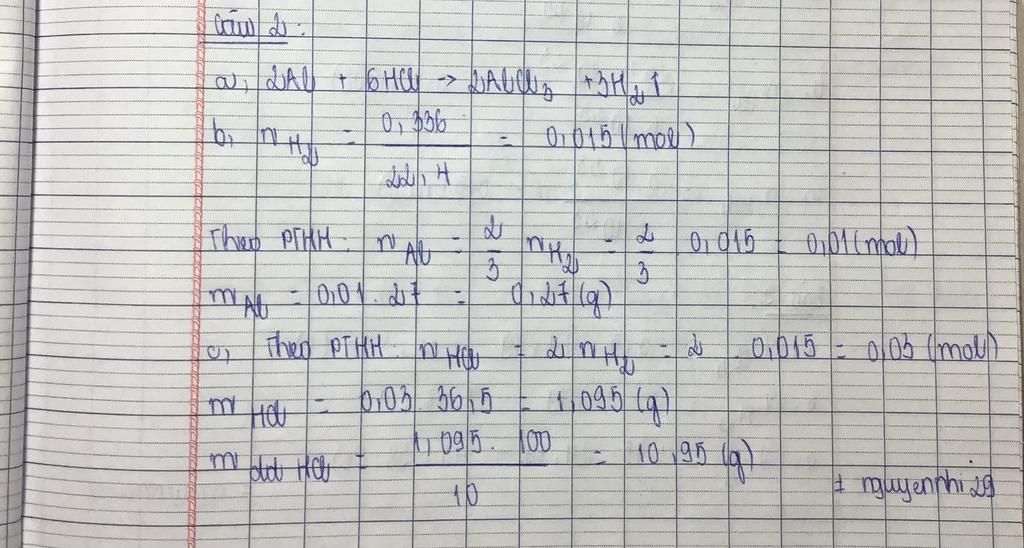 Câu 2:
a, 2Al + 6HCl → 2AlCl₃ + 3H₂↑
b, n H₂ = 0,336 / 22,4 = 0,015 (mol)
Theo PTHH: n Al = 2/3 n H₂ = 2/3 . 0,015 = 0,01 (mol)
m Al = 0,01 . 27 = 0,27 (g)
c, Theo PTHH: n HCl = 2 n H₂ = 2 . 0,015 = 0,03 (mol)
m HCl = 0,03 . 36,5 = 1,095 (g)
m dd HCl = 1,095 . 100 / 10 = 10,95 (g)
± nguyenphi29